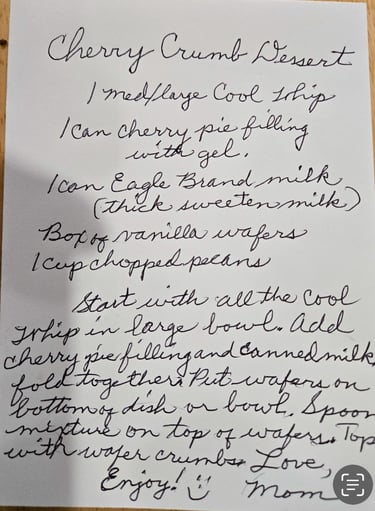 Cherry Crumb Dessert
1 med/large Cool Whip
1 can cherry pie filling
with gel.
1 can Eagle Brand milk
(thick sweeten milk)
Box of vanilla wafers
1 cup chopped pecans
Start with all the Cool
Whip in large bowl. Add
cherry pie filling and canned milk,
fold together. Put wafers on
bottom of dish or bowl. Spoon
mixture on top of wafers. Top
with wafer crumbs. Love,
Enjoy! :) Mom